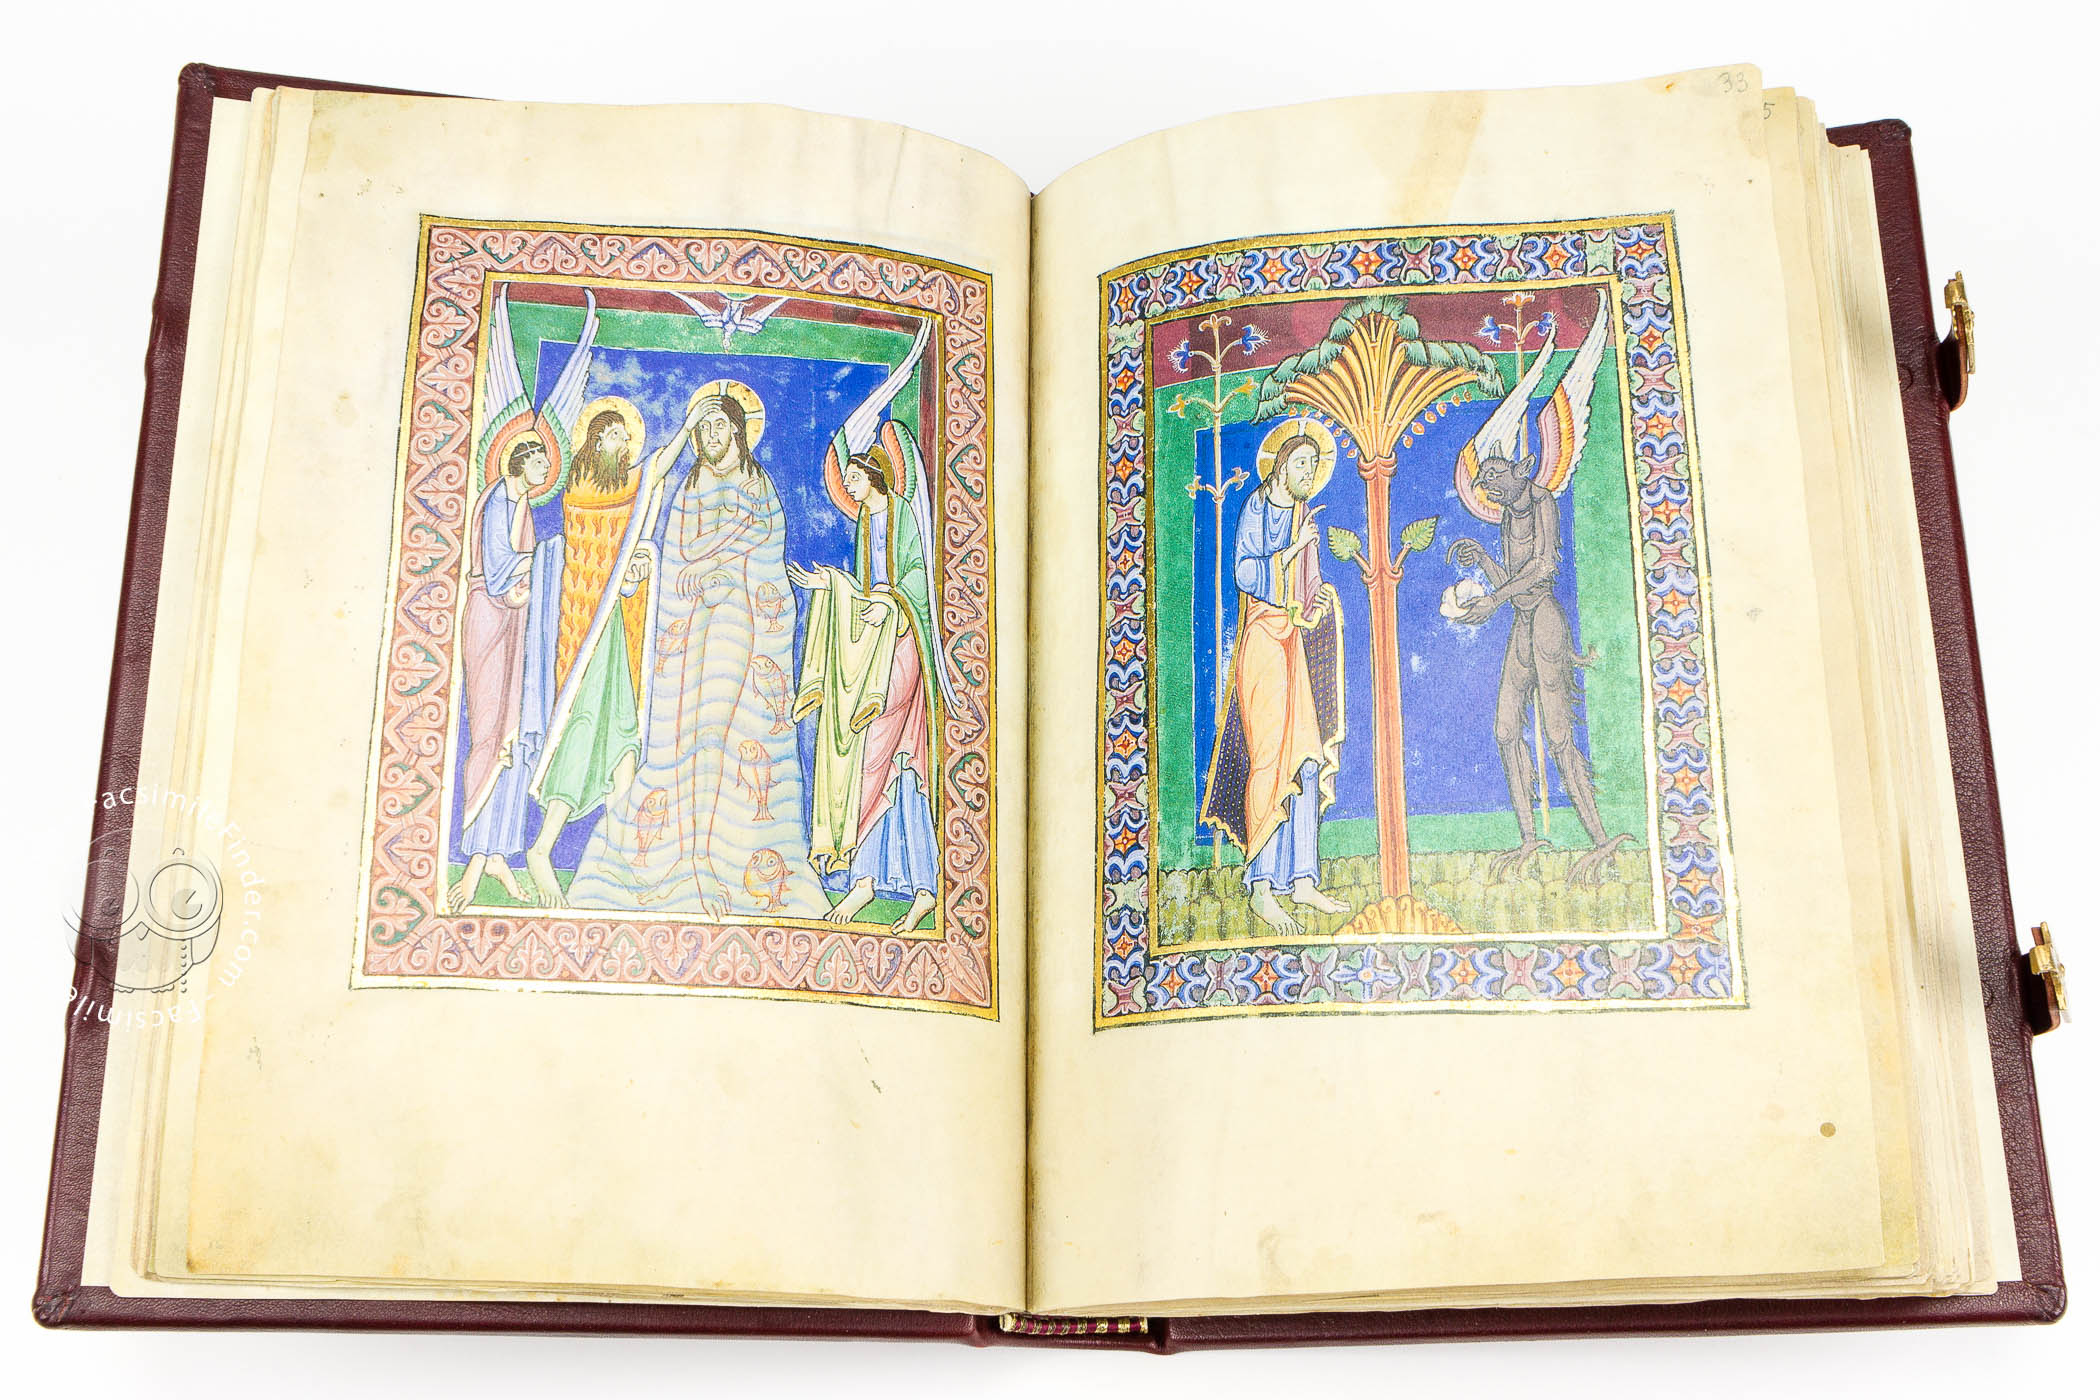 33
5
FacsimileFinder.com - Facsimile